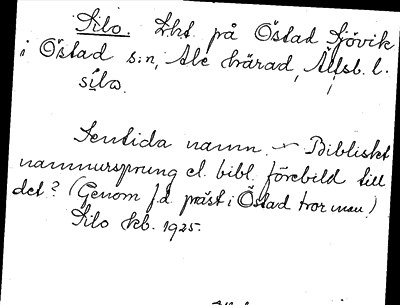 Silo. Lht. på Östad Sjövik
i Östad s:n, Ale härad, Älfsb. l.
silo.
Sentida namn. Bibliskt
namnursprung el. bibl. förebild till
det? (Genom f.d. präst i Östad tror man.)
Silo kb. 1925.